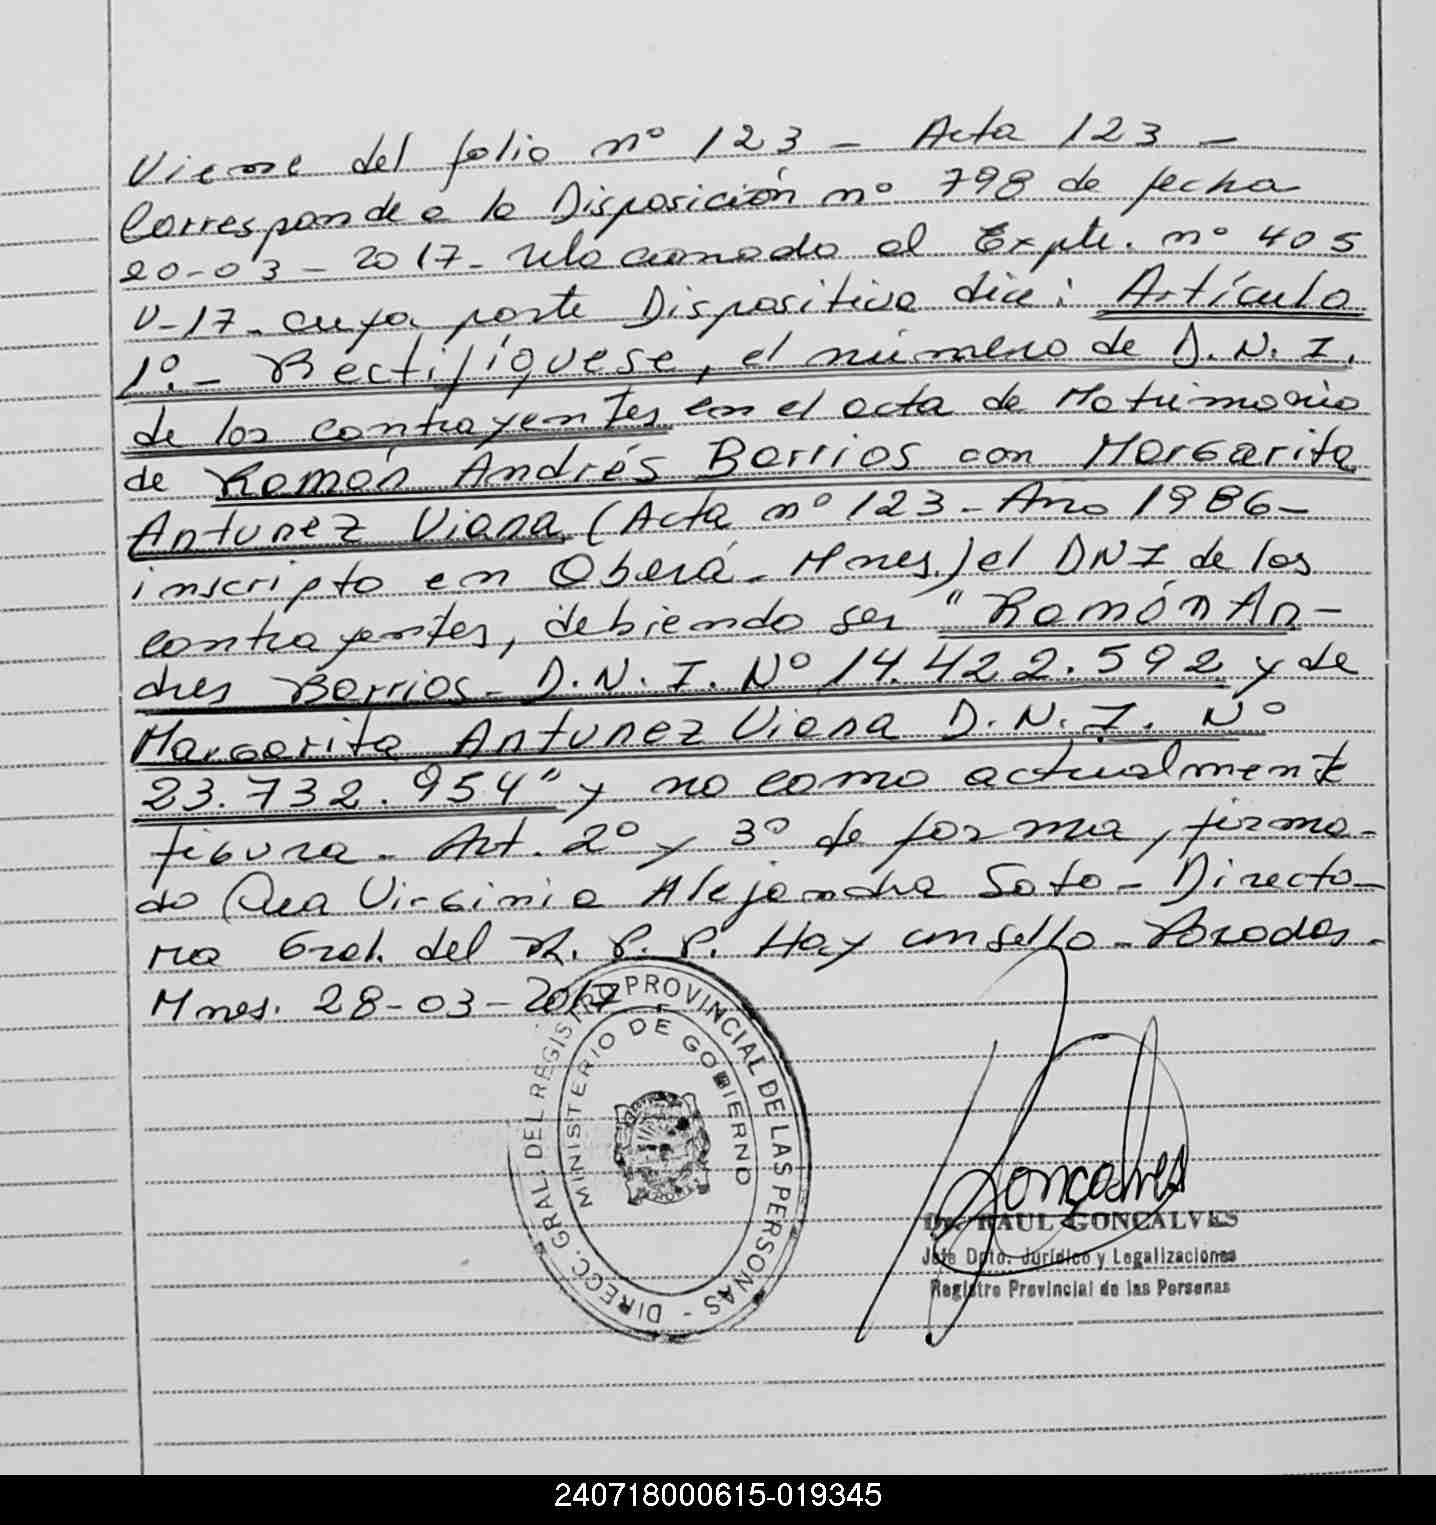 Viene del folio nº 123 - Acta 123 -
Corresponde a la Disposición nº 798 de fecha
20-03-2017- relacionado al Expte. nº 405
V-17- cuya parte Dispositiva dice: Artículo
1º.- Rectifíquese, el número de D.N.I.
de los contrayentes en el acta de Matrimonio
de Ramón Andrés Barrios con Margarita
Antunez Viana (Acta nº 123 - Año 1986-
inscripto en Oberá- Mnes.) el DNI de los
contrayentes, debiendo ser "Ramón An-
dres Barrios- D.N.I. Nº 14.422.592 y de
Margarita Antunez Viana D.N.I. Nº
23.732.954" y no como actualmente
figura- Art. 2º y 3º de forma, firma-
do Dra Virginia Alejandra Soto- Directo-
ra Gral. del R.P.P. Hay un sello-
Mnes. 28-03-2017
DIRECC. GRAL. DEL REGISTRO PROVINCIAL DE LAS PERSONAS -
MINISTERIO DE GOBIERNO
Goncalves
Dr. RAUL GONCALVES
Jefe Dpto. Jurídico y Legalizaciones
Registro Provincial de las Personas
240718000615-019345